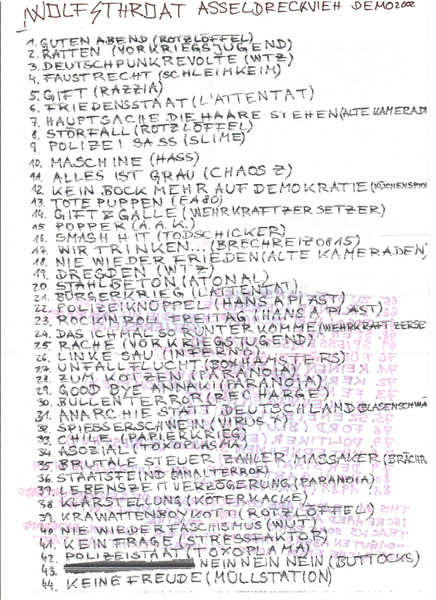 WOLFSTHROAT ASSELDRECKVIEH DEMO 2002
1. GUTEN ABEND (ROTZLÖFFEL)
2. RATTEN (VORKRIEGSJUGEND)
3. DEUTSCHPUNKREVOLTE (WTZ)
4. FAUSTRECHT (SCHLEIMKEIM)
5. GIFT (RAZZIA)
6. FRIEDENSSTAAT (L'ATTENTAT)
7. HAUPTSACHE DIE HAARE STEHEN (ALTE KAMERADE
8. STÖRFALL (ROTZLÖFFEL)
9. POLIZEI SASS (SLIME)
10. MASCHINE (HASS)
11. ALLES IST GRAU (CHAOS Z)
12. KEIN BOCK MEHR AUF DEMOKRATIE (KÜCHENSPIO
13. TOTE PUPPEN (EA80)
14. GIFT & GALLE (WEHRKRAFTZERSETZER)
15. POPPER (A.A.K.)
16. SMASH HIT (TODSCHICKER)
17. WIR TRINKEN... (BRECHREIZ0815)
18. NIE WIEDER FRIEDEN (ALTE KAMERADEN)
19. DRESDEN (WTZ)
20. STAHLBETON (ATONAL)
21. BÜRGERKRIEG (L'ATTENTAT)
22. POLIZEIKNÜPPEL (HANS A PLAST)
23. ROCK'N ROLL FREITAG (HANS A PLAST)
24. DAS ICH MAL SO RUNTER KOMME (WEHRKRAFTZERSE
25. RACHE (VORKRIEGSJUGEND)
26. LINKE SAU (INFERNO)
27. UNFALLFLUCHT (BOXHAMSTERS)
28. ZUM KOTZEN (PARANOIA)
29. GOOD BYE ANNAKI (PARANOIA)
30. BULLENTERROR (RECHARGE)
31. ANARCHIE STATT DEUTSCHLAND (BLASENSCHWÄ
32. SPIESSERSCHWEIN (VIRUS X)
33. CHILE (PAPIERKRIEG)
34. ASOZIAL (TOXOPLASMA)
35. BRUTALE STEUER ZAHLER MASSAKER (BRÄCHR
36. STAATSFEIND (ANALTERROR)
37. LEBENSZEITVERZÖGERUNG (PARANOIA)
38. KLARSTELLUNG (KÖTERKACKE)
39. KRAWATTENBOYKOTT (ROTZLÖFFEL)
40. NIE WIEDER FASCHISMUS (WUT)
41. KEIN FRAGE (STRESSFAKTOR)
42. POLIZEISTAAT (TOXOPLAMA)
43. NEIN NEIN NEIN (BUTTOCKS)
44. KEINE FREUDE (MÜLLSTATION)